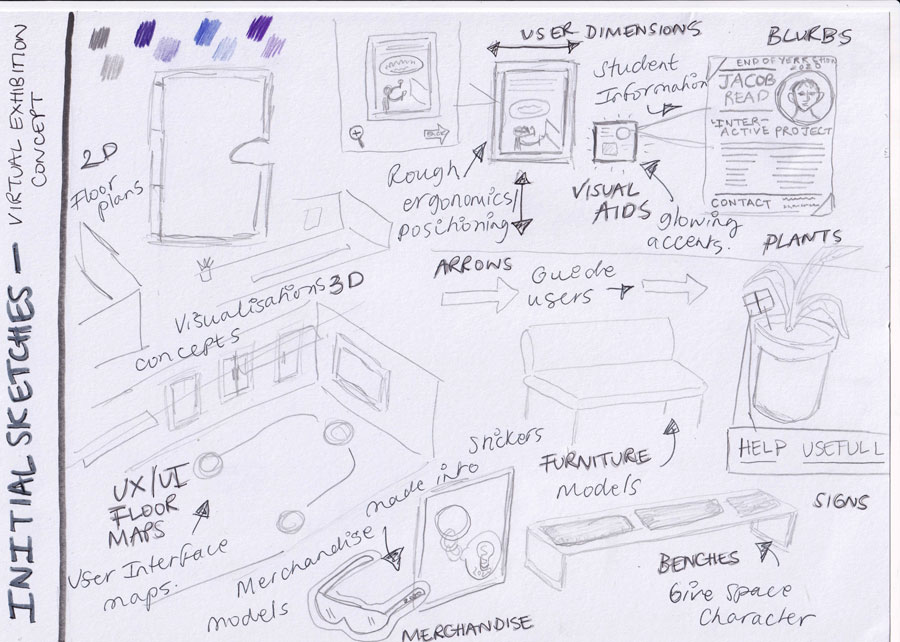 INITIAL SKETCHES — VIRTUAL EXHIBITION
CONCEPT
2D
Floor
plans
USER DIMENSIONS
BLURBS
Student
Information
END OF YERR SHOW
2020
JACOB
READ
'INTER-
ACTIVE PROJECT
CONTACT
BACK
Rough
ergonomics/
positioning
VISUAL
AIDS
glowing
accents.
PLANTS
ARROWS
Guide
users
Visualisations 3D
concepts
UX/UI
FLOOR
MAPS
User Interface
maps.
Stickers
made into
Merchandise
models
MERCHANDISE
FURNITURE
Models
HELP USEFULL
SIGNS
BENCHES
Give Space
Character